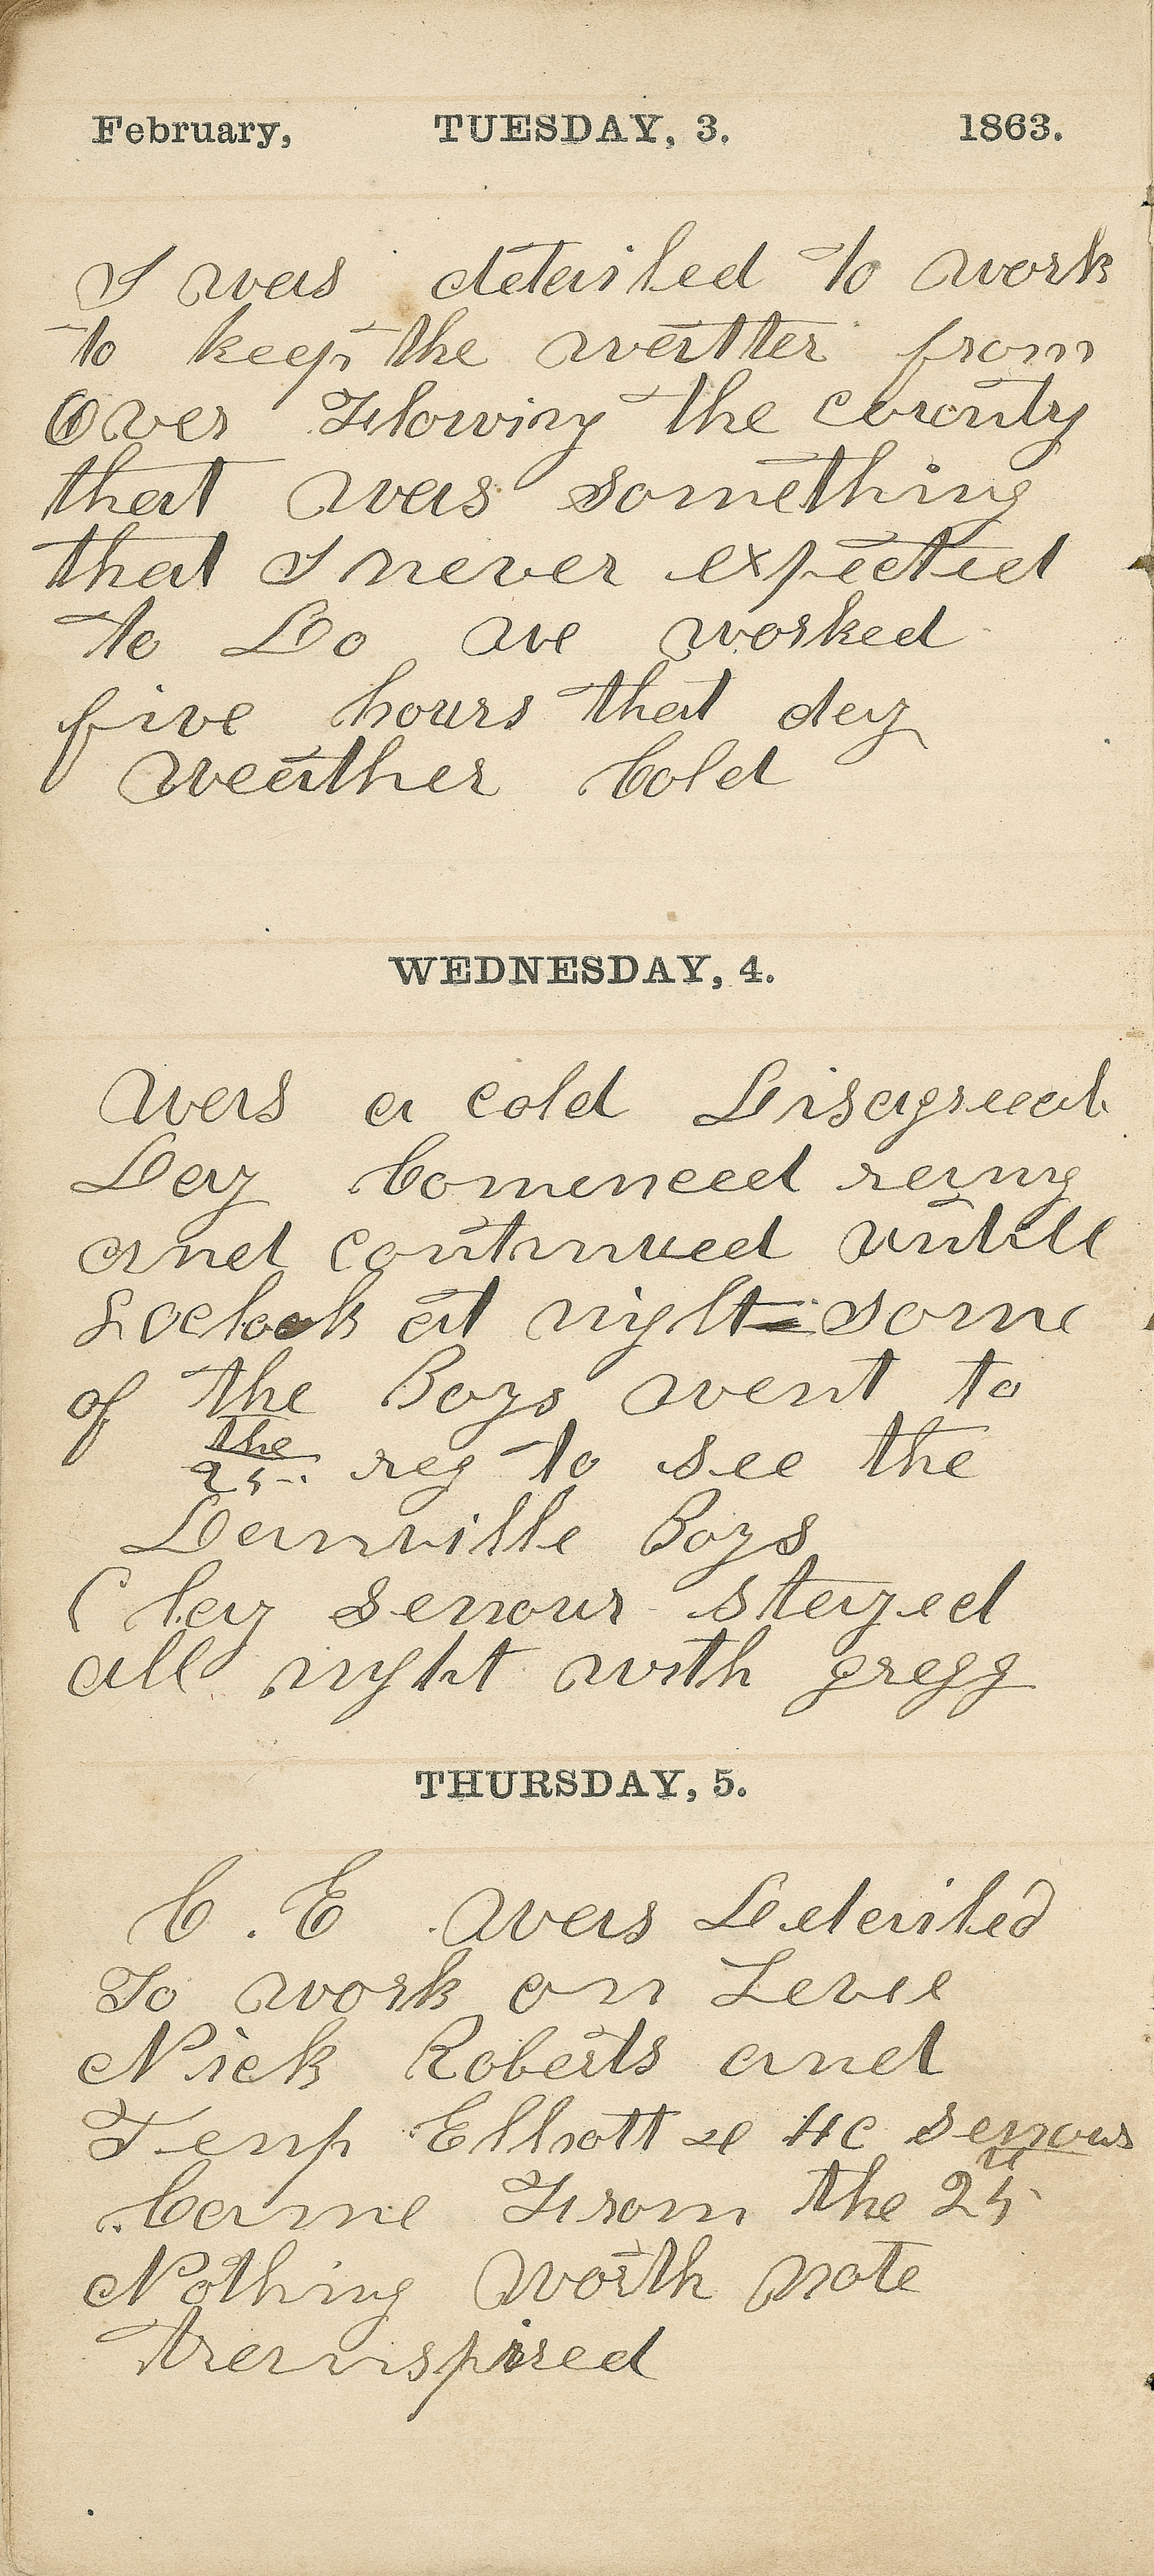 February, TUESDAY, 3. 1863.
I was detailed to work
to keep the watter from
Over Flowing the county
that was something
that I never expected
to Do we worked
five hours that day
weather Cold
WEDNESDAY, 4.
Was a cold Disagreeab
Day Comenced
and continued untill
oclock at night some
of the Boys went to
the 25 reg to see the
Danville Boys
Clay senour stayed
all night with gregg
THURSDAY, 5.
C. E was Detailed
To work on Levee
Nick Roberts and
Temp Elliott & HC senour
Came From the 25
Nothing worth note
transpired